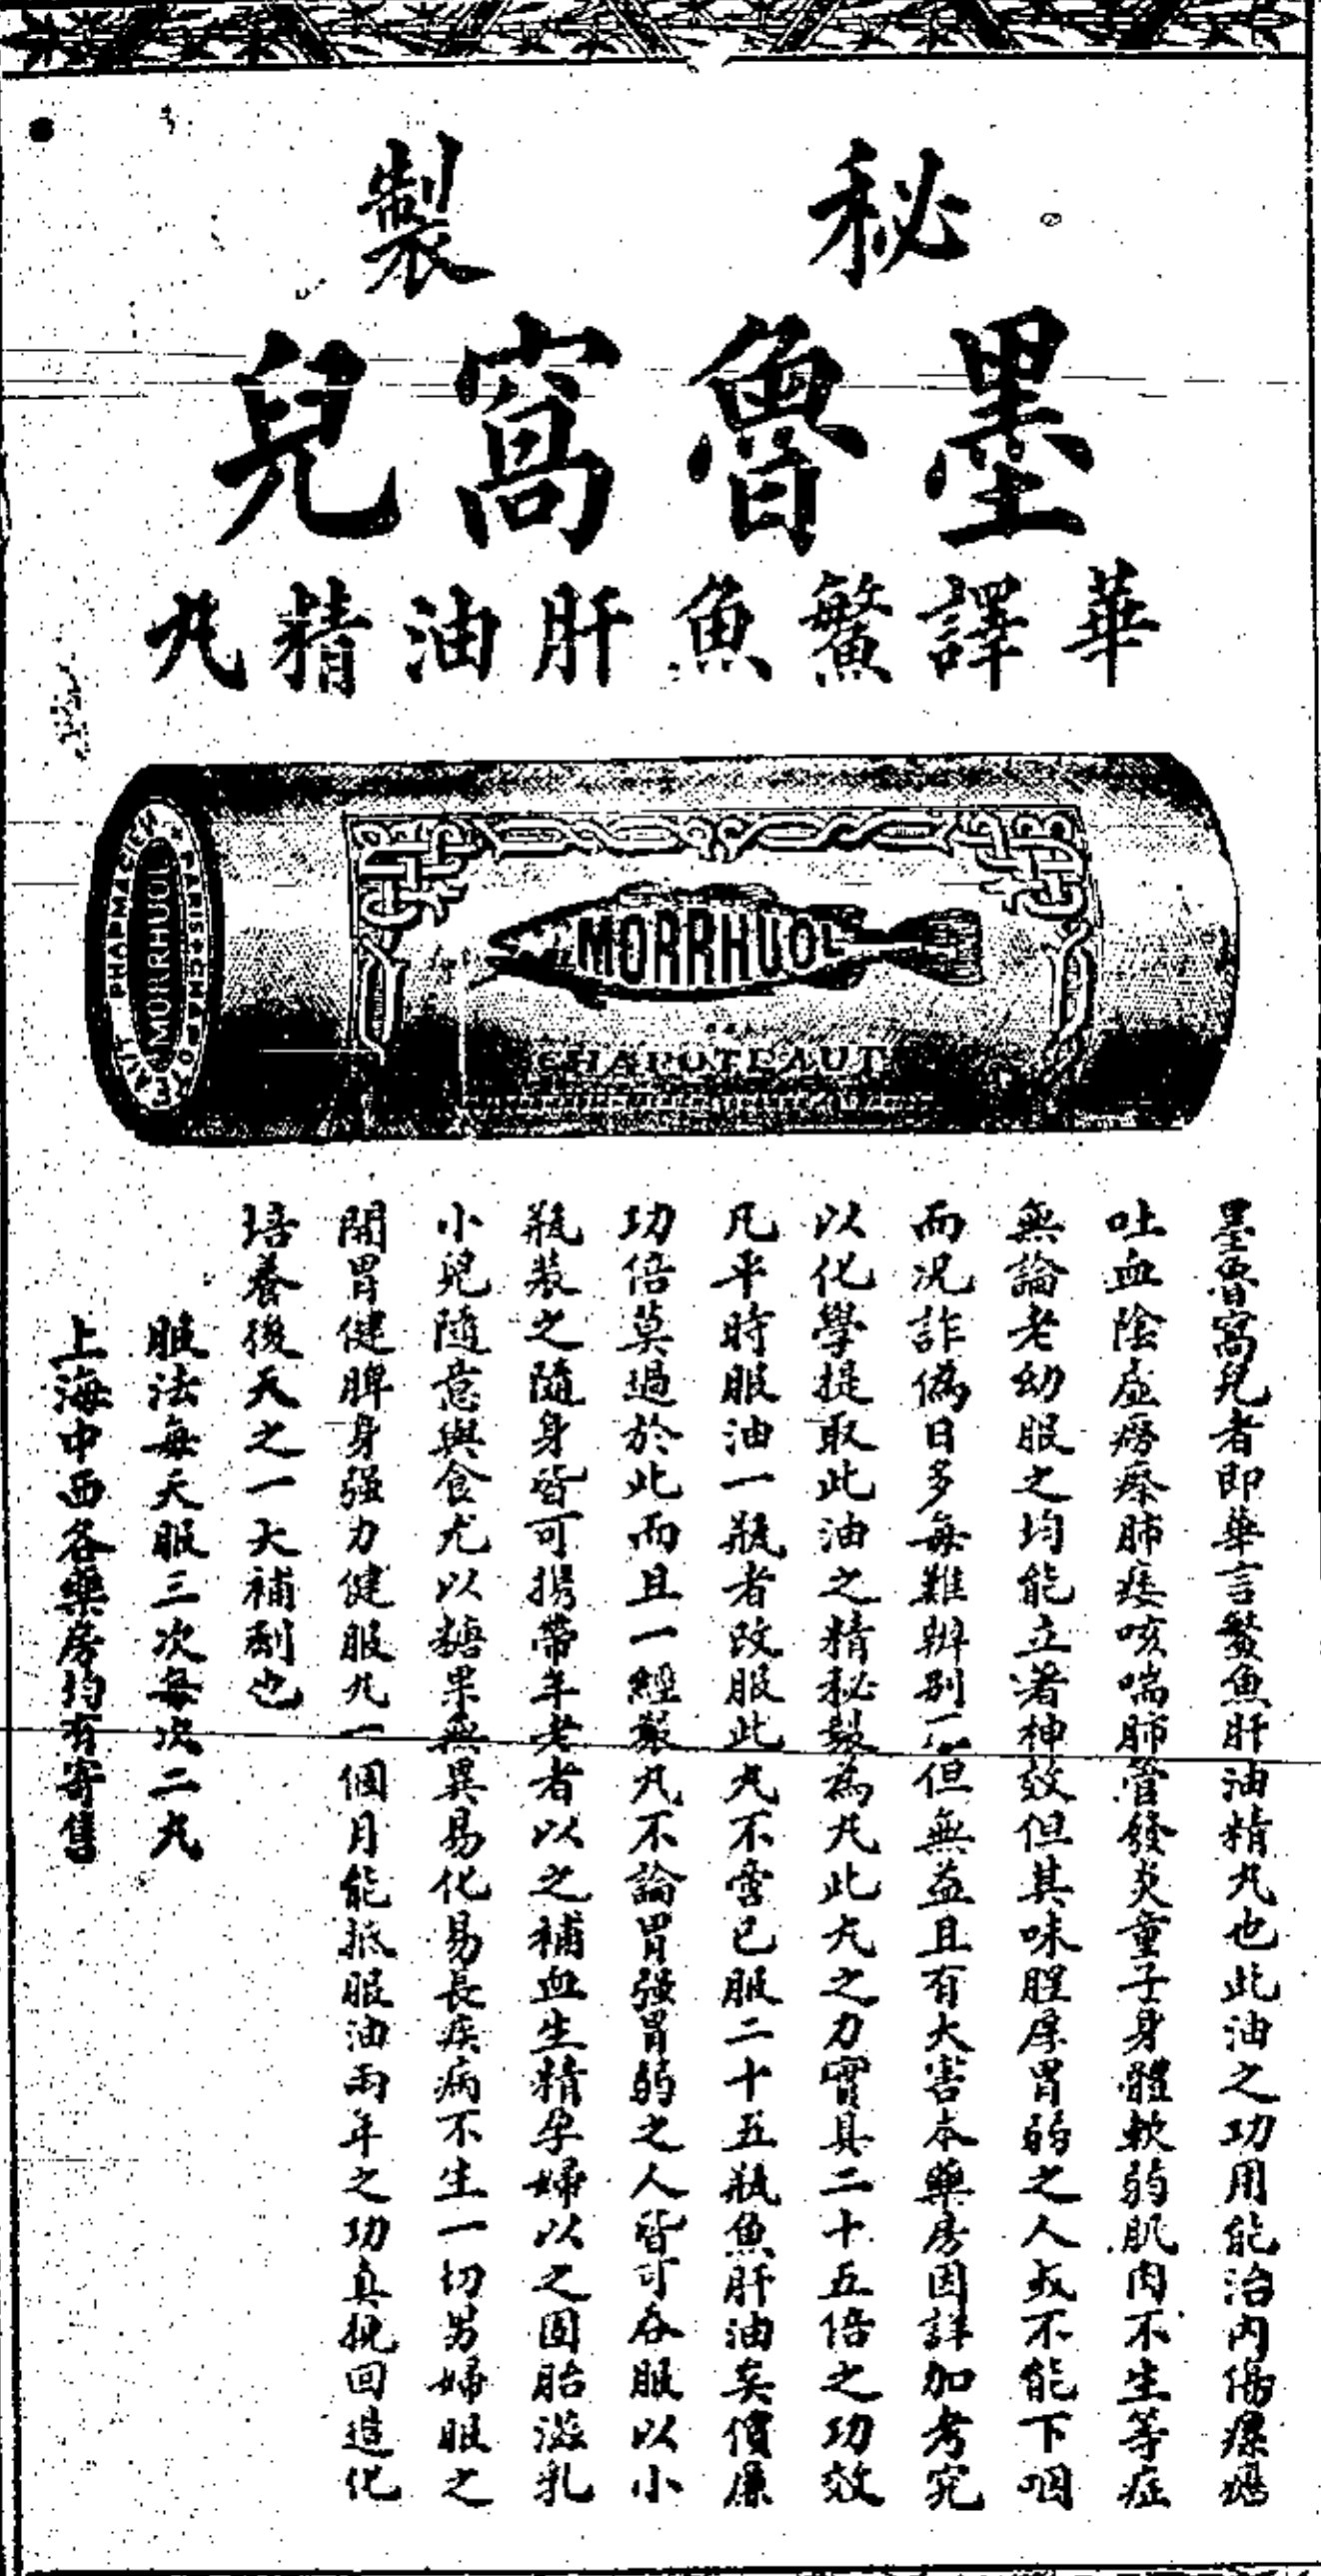 秘製
墨魯窩兒
華譯鰵魚肝油精丸
PHARMACIEN * PARIS * CHAPOTEAUT
MORRHUOL
MORRHUOL
CHAPOTEAUT
墨魯窩兒者即華言鰵魚肝油精丸也此油之功用能治內傷瘰癧
吐血陰虛癆瘵肺痿咳喘肺管發炎童子身體軟弱肌肉不生等症
無論老幼服之均能立著神效但其味腥厚胃弱之人或不能下咽
而况詐偽日多每難辨別不但無益且有大害本藥房因詳加考究
以化學提取此油之精秘製為丸此丸之力實具二十五倍之功效
凡平時服油一瓶者改服此丸不啻已服二十五瓶魚肝油矣價廉
功倍莫過於此而且一經製丸不論胃强胃弱之人皆可吞服以小
瓶裝之隨身皆可携帶年老者以之補血生精孕婦以之固胎滋乳
小兒隨意與食尤以糖果無異易化易長疾病不生一切男婦服之
開胃健脾身强力健服丸一個月能抵服油兩年之功真挽回造化
培養後天之一大補劑也
服法每天服三次每次二丸
上海中西各藥房均有寄售